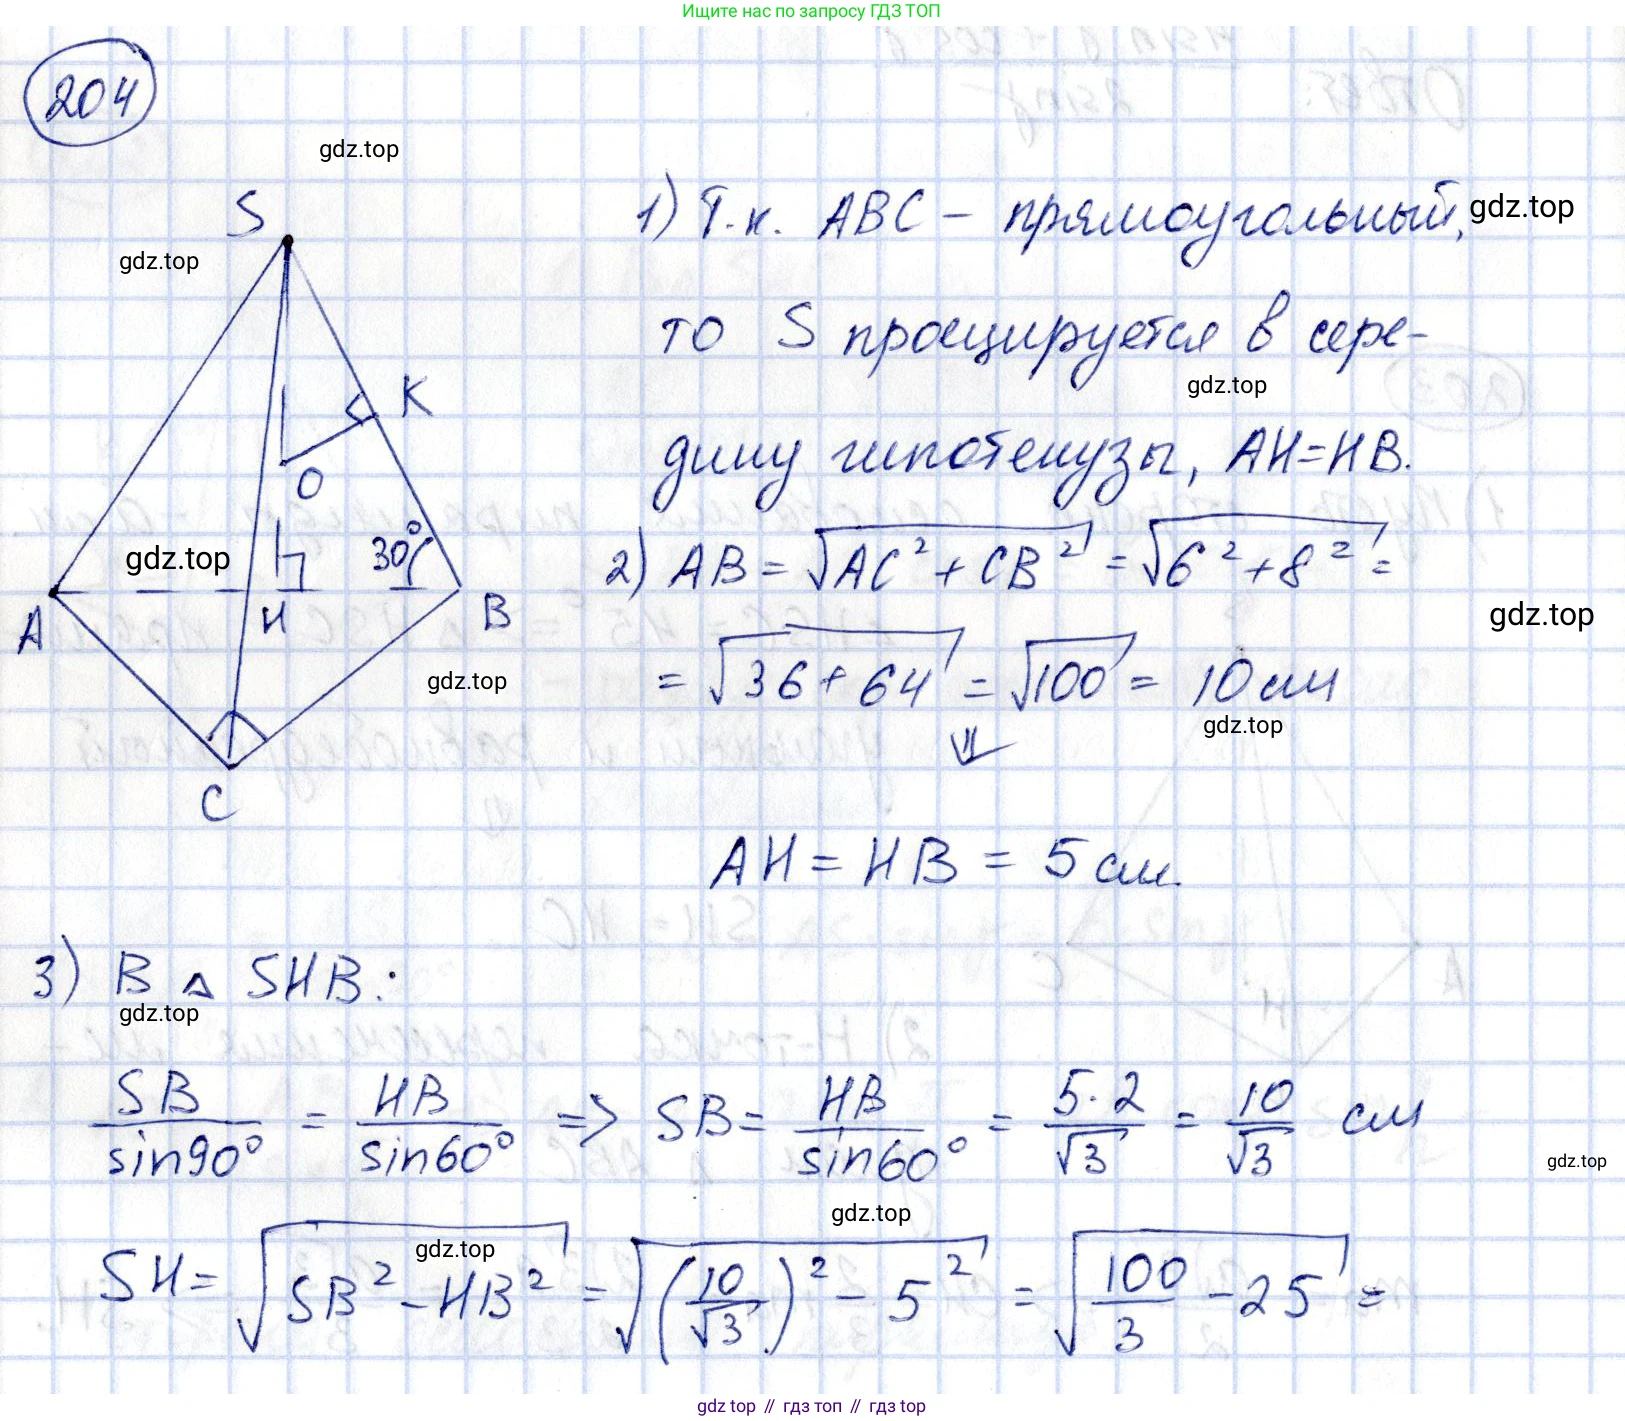 Ищите нас по запросу ГДЗ ТОП
204
gdz.top
S
gdz.top
K
O
gdz.top
30°
A
H
B
gdz.top
C
1) Т.к. ABC – прямоугольный, gdz.top
то S проецируется в сере-
gdz.top
дину гипотенузы, AH=HB.
2) AB = √AC² + CB² = √6² + 8² =
gdz.top
= √36 + 64 = √100 = 10 см
gdz.top
⇓
AH = HB = 5 см.
3) В △ SHB:
gdz.top
SB/sin90° = HB/sin60° => SB = HB/sin60° = 5·2/√3 = 10/√3 см
gdz.top
gdz.top
gdz.top
SH = √SB² – HB² = √(10/√3)² – 5² = √100/3 – 25 =
gdz.top // гдз топ // gdz.top